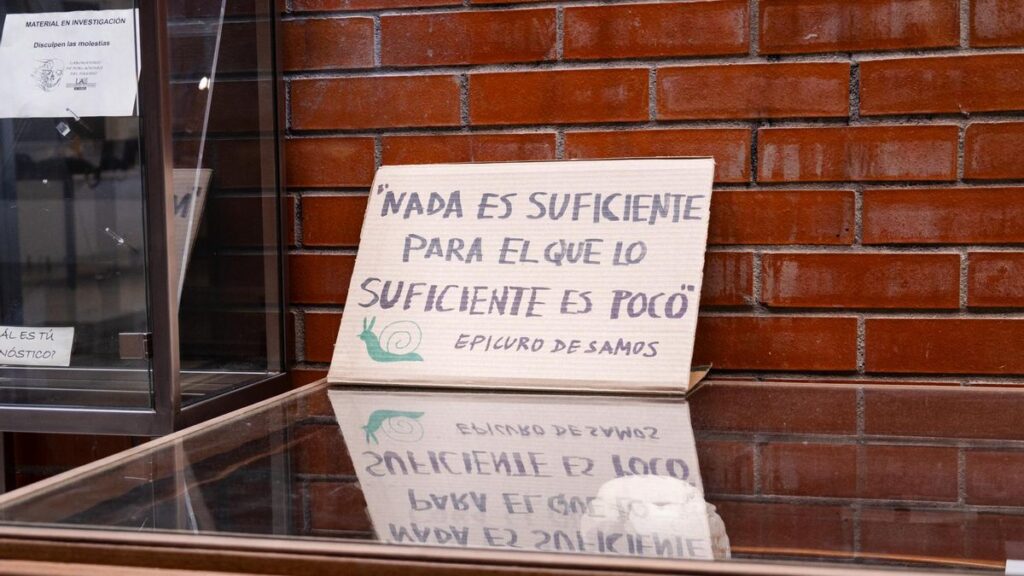 MATERIAL EN INVESTIGACIÓN
Disculpen las molestias
LABORATORIO
DE POBLACIONES
DEL PASADO
"NADA ES SUFICIENTE
PARA EL QUE LO
SUFICIENTE ES POCO"
EPICURO DE SAMOS
ÁL ES TÚ
NÓSTICO?